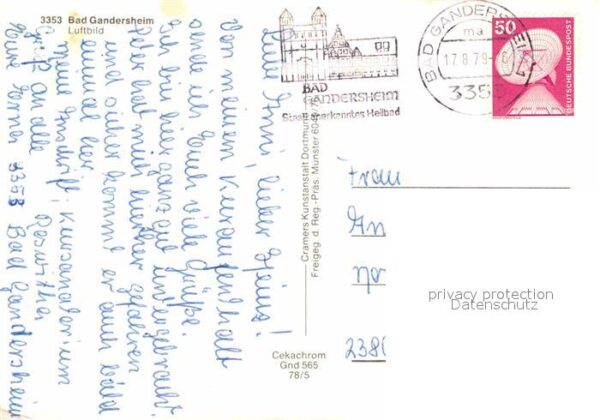 3353 Bad Gandersheim
Luftbild
BAD
GANDERSHEIM
Staatl. anerkanntes Heilbad
BAD GANDERSHEIM 1
ma
17.8.79
3353
50
DEUTSCHE BUNDESPOST
Liebe Anni, lieber Heinz!
Von meinem Kuraufenthalt
sende ich Euch viele Grüße.
Ich bin hier ganz gut untergebracht
Peter hat mich hierher gefahren
und sicher kommt er auch bald
einmal her.
meine Anschrift: Kursanatorium
Roswitha
3353 Bad Gandersheim
Grüße an alle
Eure
Cramers Kunstanstalt Dortmund
Freigeg. d. Reg.-Präs. Münster
Cekachrom
Gnd 565
78/5
Frau
An
No
238
privacy protection
Datenschutz